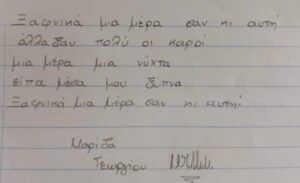 Ξαφνικά μια μέρα σαν κι αυτή
άλλαξαν πολύ οι καιροί
μια μέρα μια νύχτα
είπα μέσα μου ξύπνα
Ξαφνικά μια μέρα σαν κι αυτή!
Μαρίδα
Γεωργίου